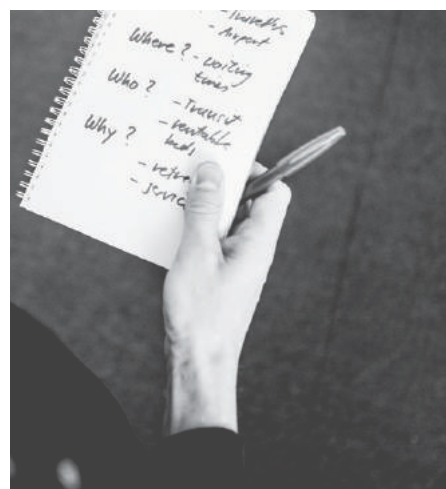 - Travellers
- Airport
Where? - waiting
times
Who? - Transit
- rentable
beds
Why?
- retre
- servic